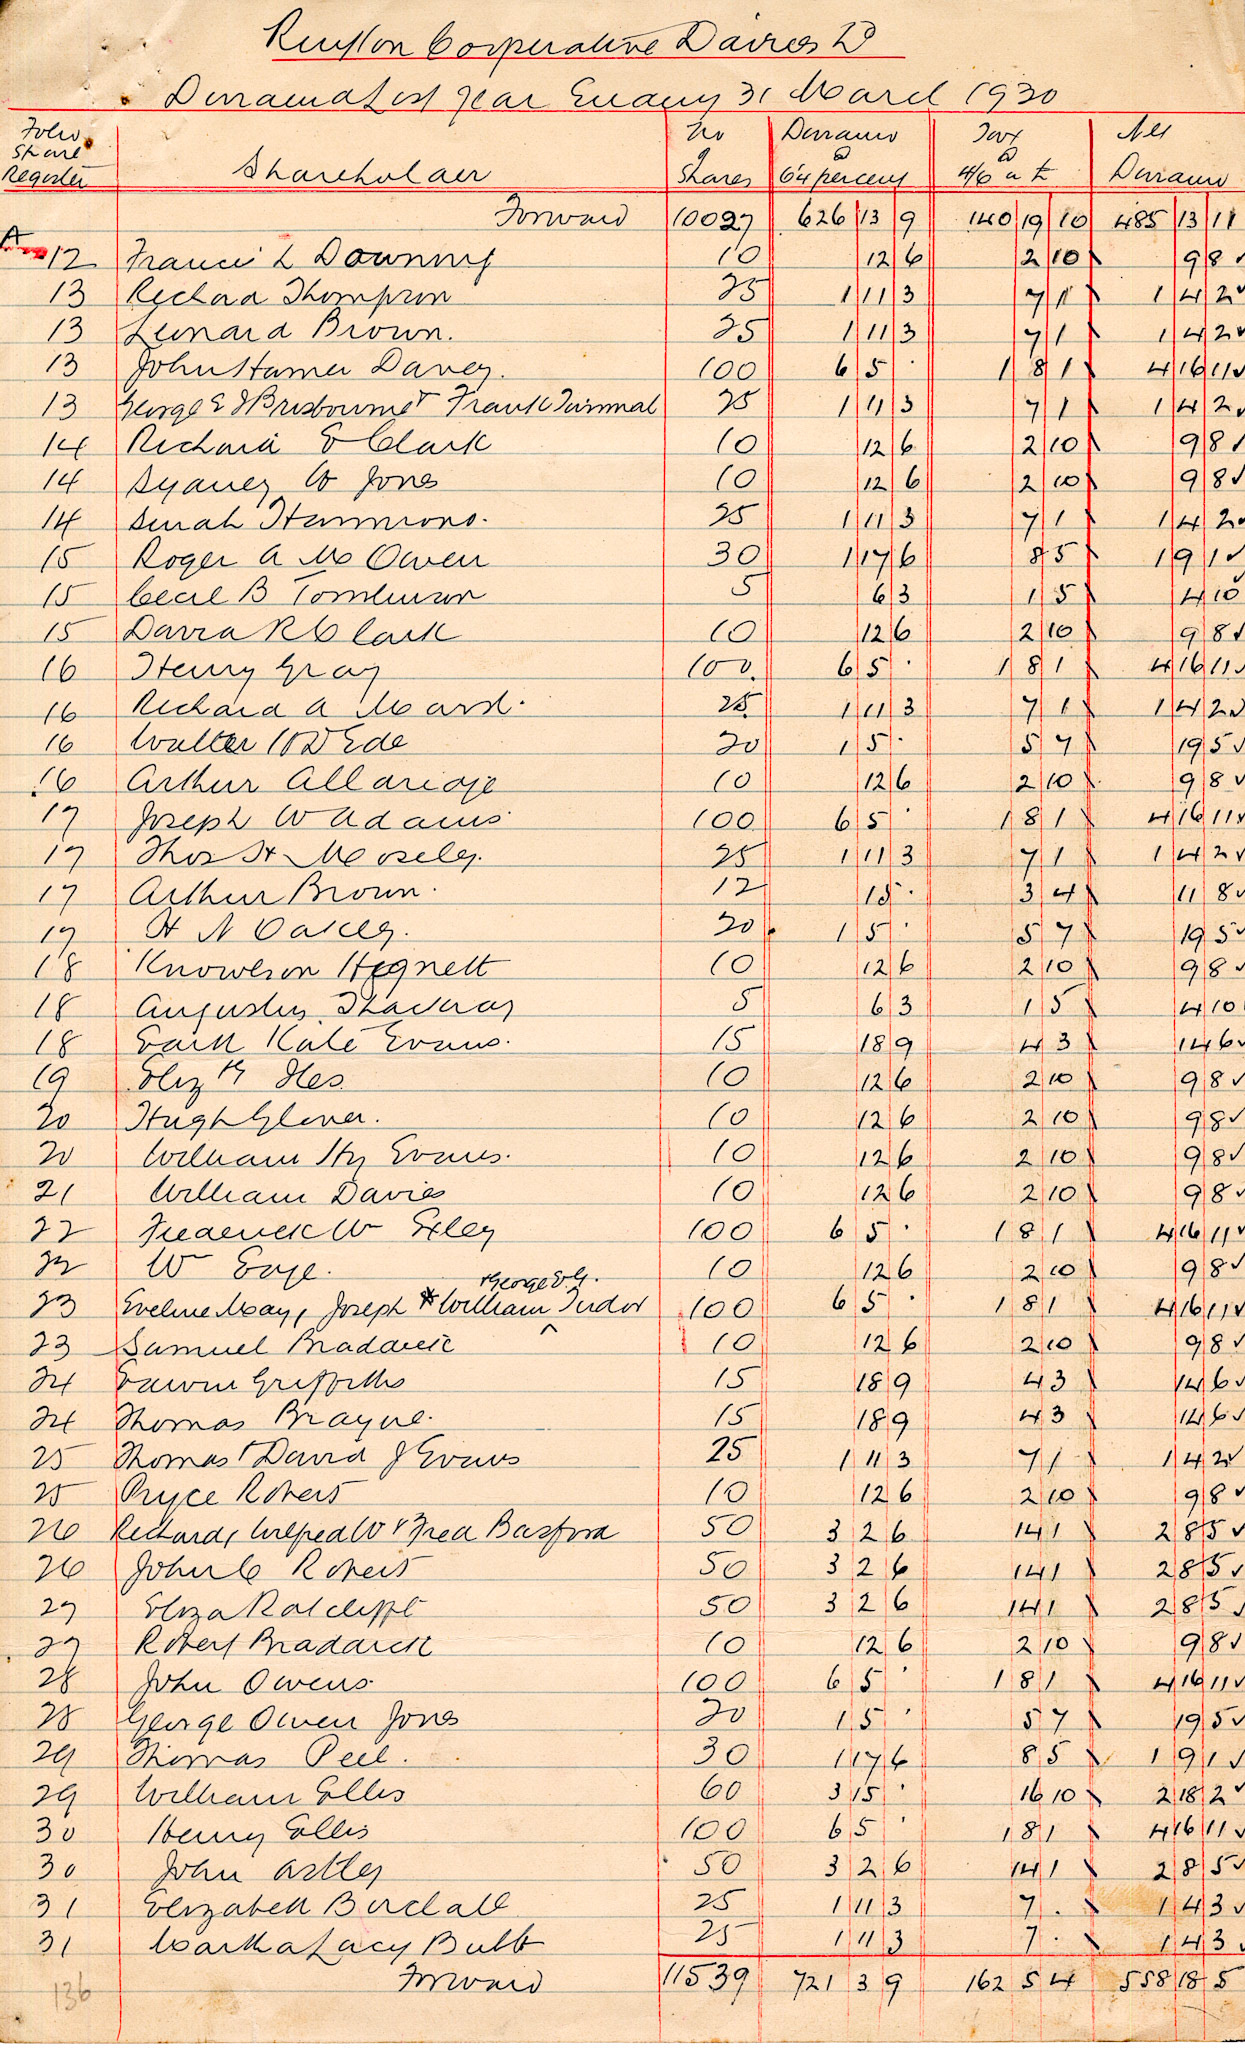 Ruyton Cooperative Dairies Ld
Dividend List Year Ending 31 March 1930
Folio Share Register Shareholder No Shares Dividend @ 6¼ percent Tax @ 4/6 in £ Net Dividend
Forward 10027 626 13 9 140 19 10 485 13 11
A 12 Francis L Downing 10 12 6 2 10 9 8
13 Richard Thompson 25 1 11 3 7 1 1 4 2
13 Leonard Brown. 25 1 11 3 7 1 1 4 2
13 John Hamer Davey. 100 6 5 · 1 8 1 4 16 11
13 George E J Brisbourne & Frank 25 1 11 3 7 1 1 4 2
14 Richard E Clark 10 12 6 2 10 9 8
14 Sydney W Jones 10 12 6 2 10 9 8
14 Sarah Hammond. 25 1 11 3 7 1 1 4 2
15 Roger A M Owen 30 1 17 6 8 5 1 9 1
15 Cecil B Tomlinson 5 6 3 1 5 4 10
15 David R Clark 10 12 6 2 10 9 8
16 Henry Gray 100. 6 5 · 1 8 1 4 16 11
16 Richard A Ward. 25 1 11 3 7 1 1 4 2
16 Walter W D Ede 20 1 5 · 5 7 19 5
16 Arthur Allaridge 10 12 6 2 10 9 8
17 Joseph W Adams 100 6 5 · 1 8 1 4 16 11
17 Thos H Moseley. 25 1 11 3 7 1 1 4 2
17 Arthur Brown. 12 15 · 3 4 11 8
17 H N Oakley. 20 1 5 · 5 7 19 5
18 Knowlson Hignett 10 12 6 2 10 9 8
18 Augustus Thackray 5 6 3 1 5 4 10
18 Edith Kate Evans. 15 18 9 4 3 14 6
19 Elizth Iles 10 12 6 2 10 9 8
20 Hugh Glover. 10 12 6 2 10 9 8
20 William Hy Evans. 10 12 6 2 10 9 8
21 William Davies 10 12 6 2 10 9 8
22 Frederick W Exley 100 6 5 · 1 8 1 4 16 11
22 Wm 10 12 6 2 10 9 8
& George E G.
23 Eveline May, Joseph & William ^ Tudor 100 6 5 · 1 8 1 4 16 11
23 Samuel Braddick 10 12 6 2 10 9 8
24 Edwin Griffiths 15 18 9 4 3 14 6
24 Thomas Brayne. 15 18 9 4 3 14 6
25 Thomas & David J Evans 25 1 11 3 7 1 1 4 2
25 Pryce Robert 10 12 6 2 10 9 8
26 Richard, Wilfred W & Fred Basford 50 3 2 6 14 1 2 8 5
26 John C Robert 50 3 2 6 14 1 2 8 5
27 Eliza Ratcliffe 50 3 2 6 14 1 2 8 5
27 Robert Braddick 10 12 6 2 10 9 8
28 John Owens. 100 6 5 · 1 8 1 4 16 11
28 George Owen Jones 20 1 5 · 5 7 19 5
29 Thomas Peel. 30 1 17 6 8 5 1 9 1
29 William Ellis 60 3 15 · 16 10 2 18 2
30 Henry Ellis 100 6 5 · 1 8 1 4 16 11
30 John Astley 50 3 2 6 14 1 2 8 5
31 Elizabeth Birchall 25 1 11 3 7 · 1 4 3
31 Martha Lacy Bubb 25 1 11 3 7 · 1 4 3
Forward 11539 721 3 9 162 5 4 558 18 5
136